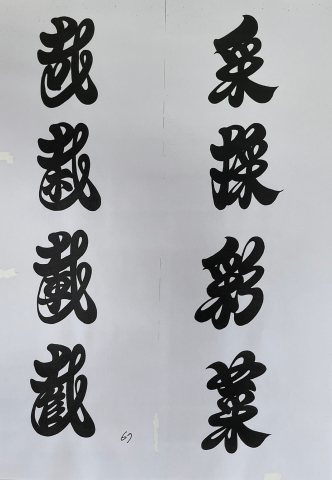 采
採
彩
菜
哉
裁
載
截
67